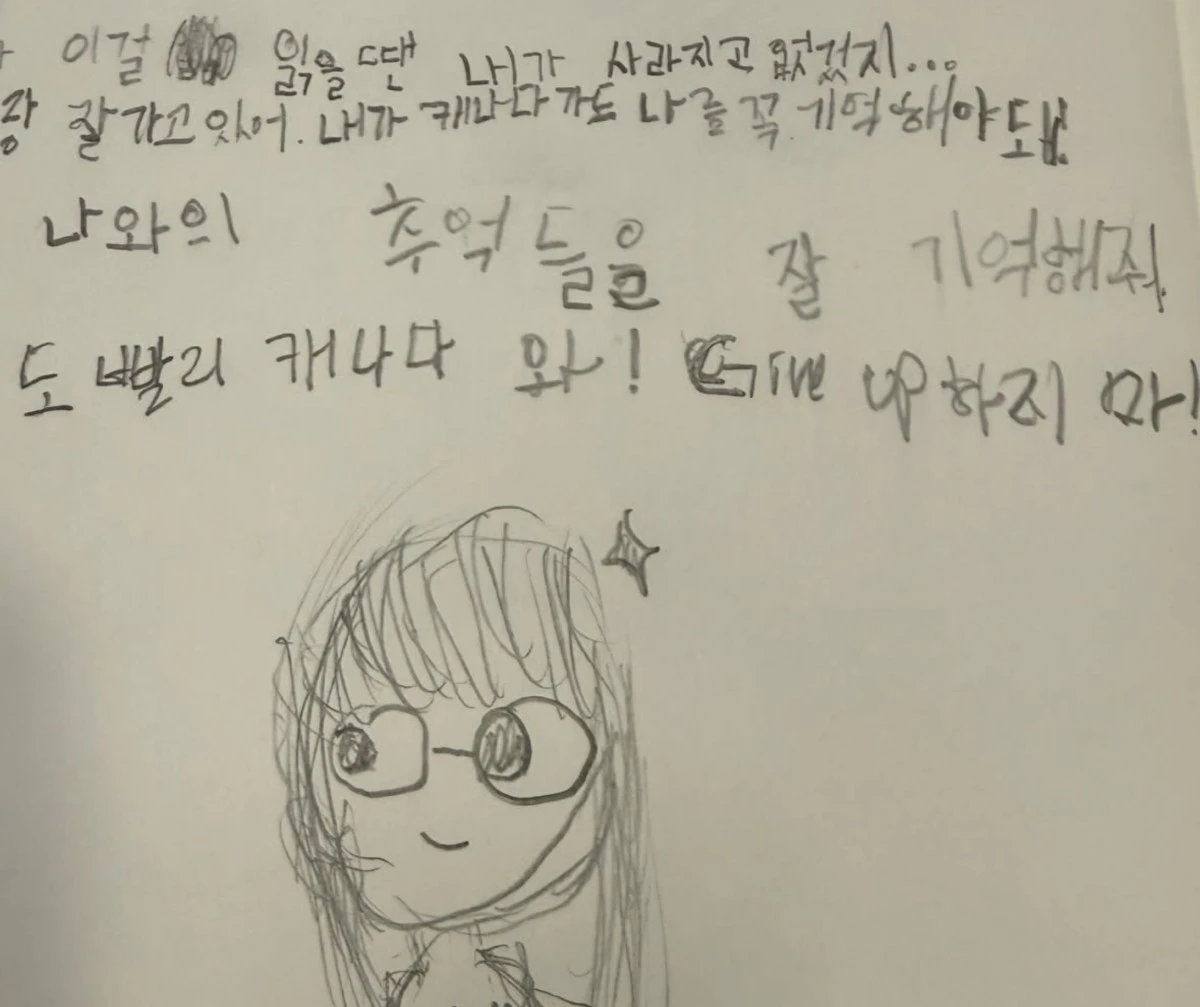 이걸 읽을 땐 내가 사라지고 없겠지...
랑 잘 가고 있어. 내가 캐나다 가도 나를 꼭 기억해야 돼!
나와의 추억들을 잘 기억해줘
도 빨리 캐나다 와! give up 하지 마!